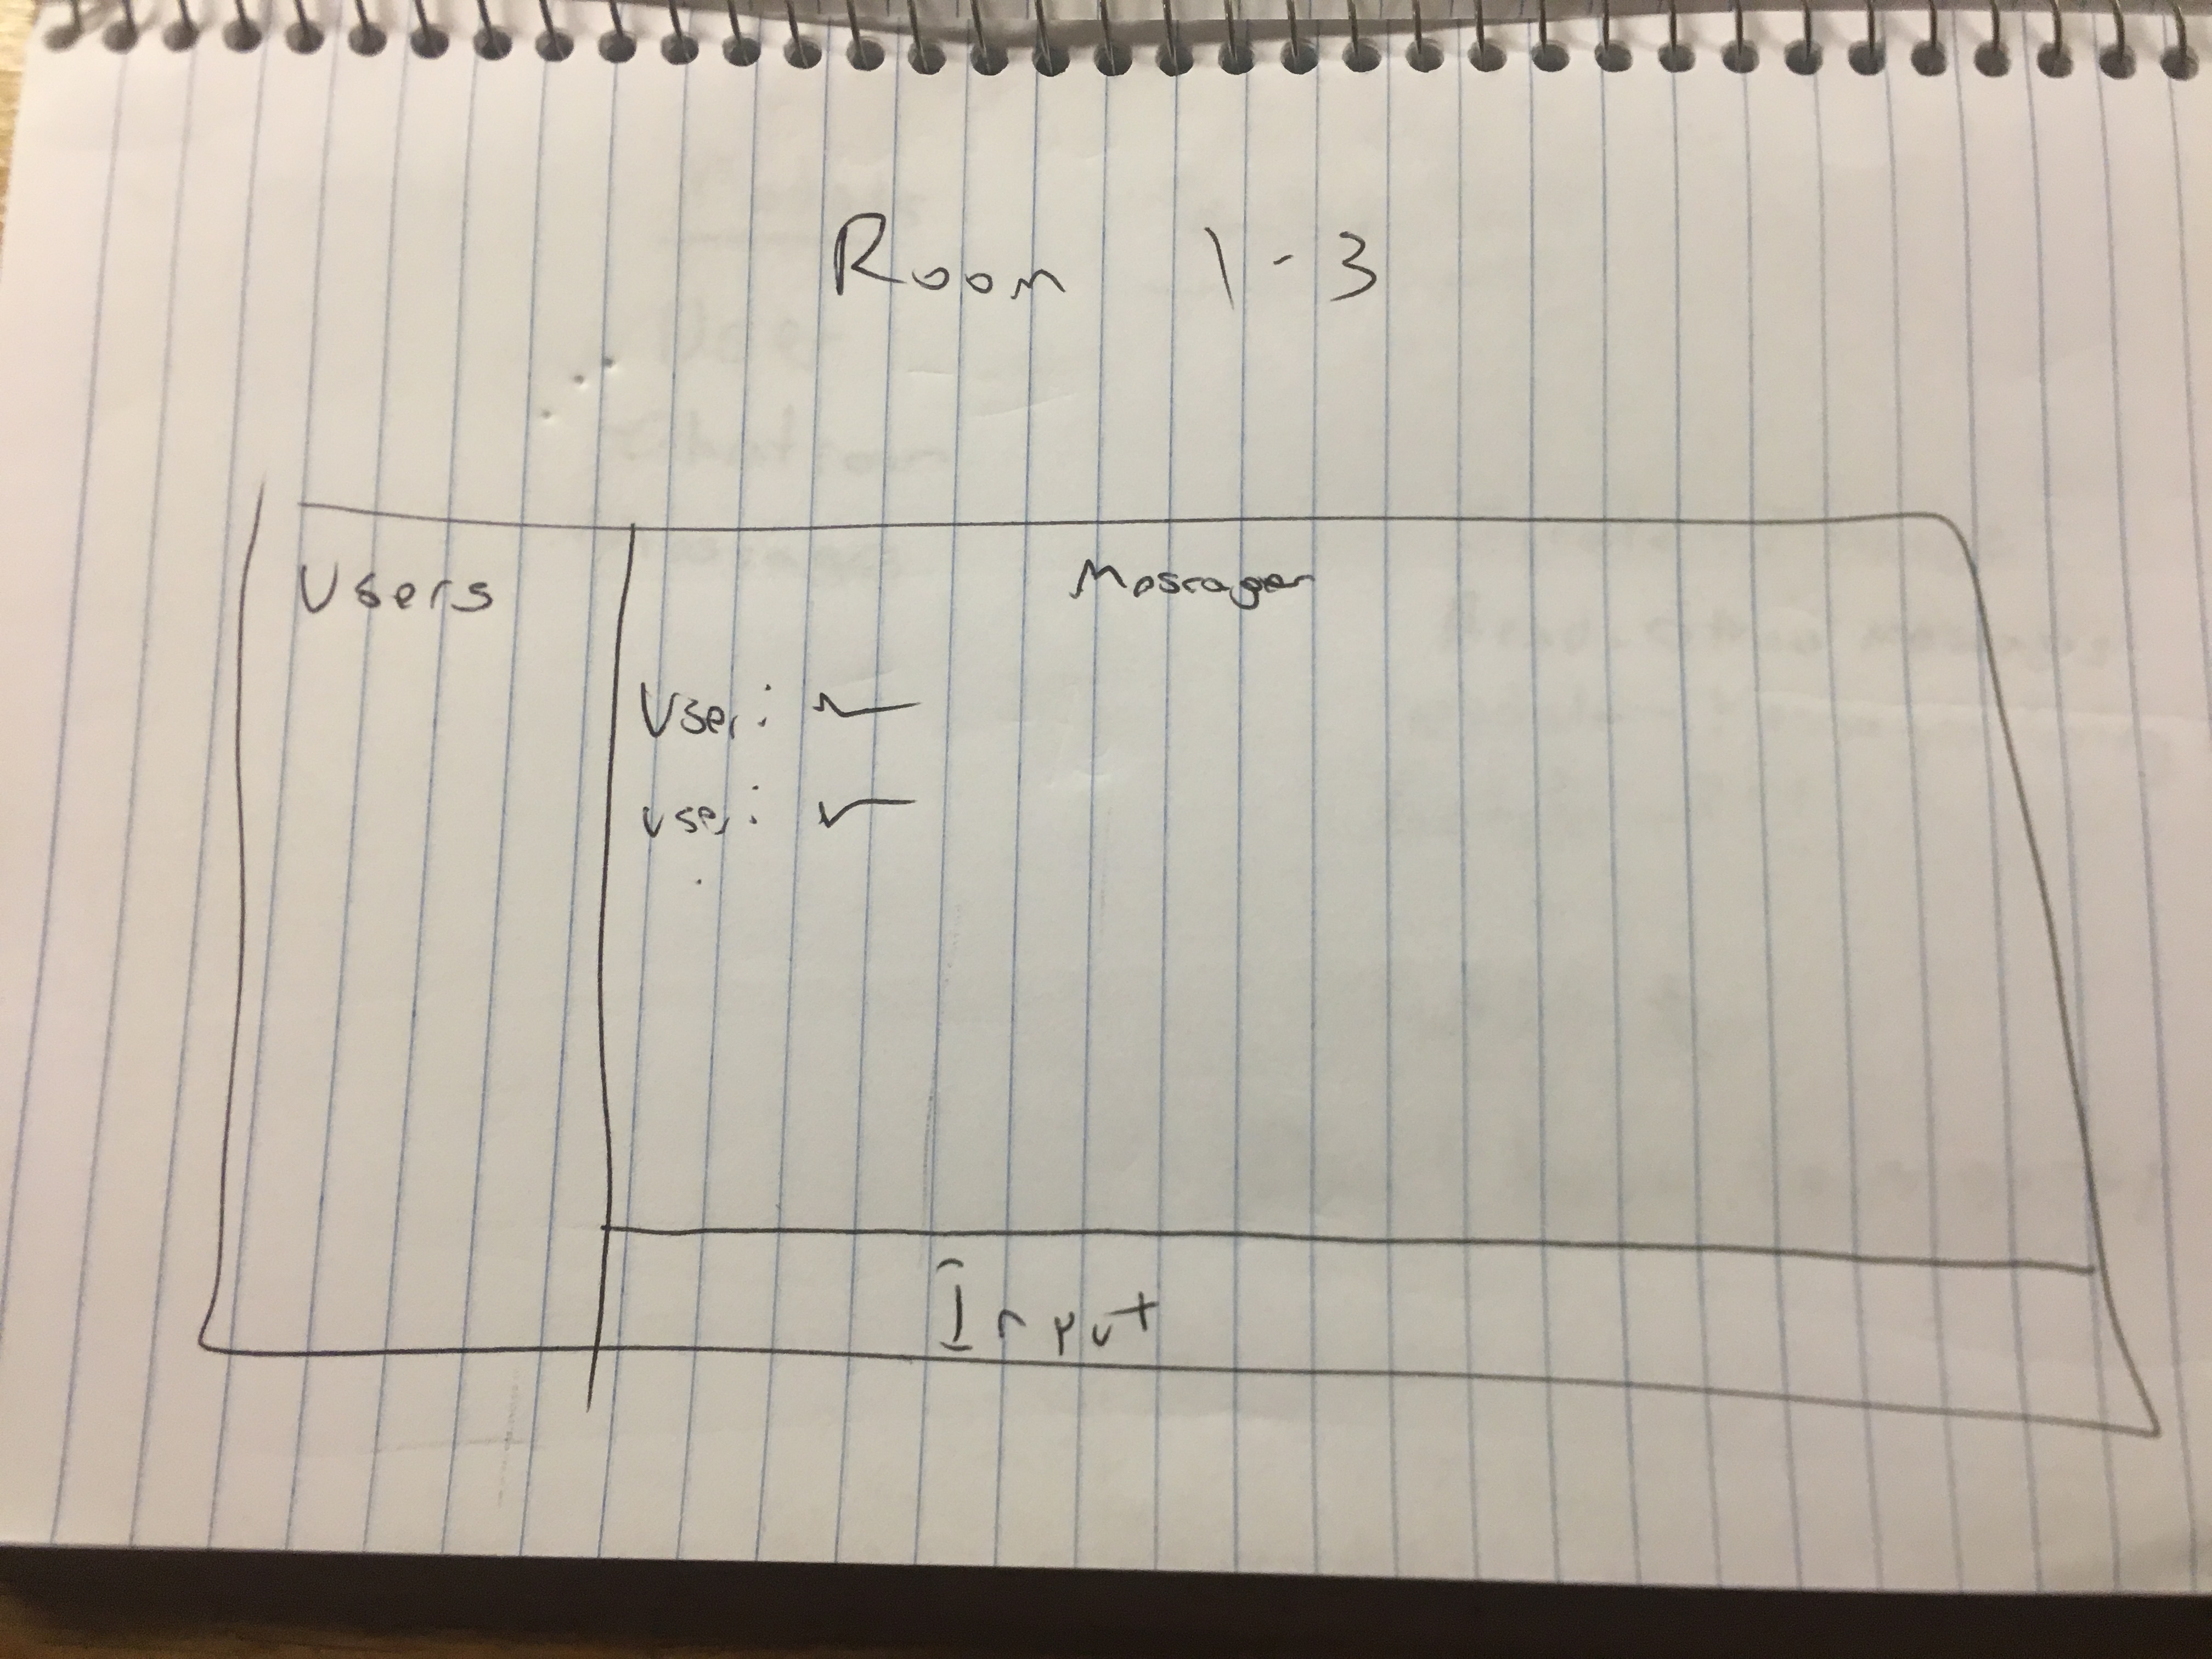 Room 1-3
Users
Messages
User:
user:
Input